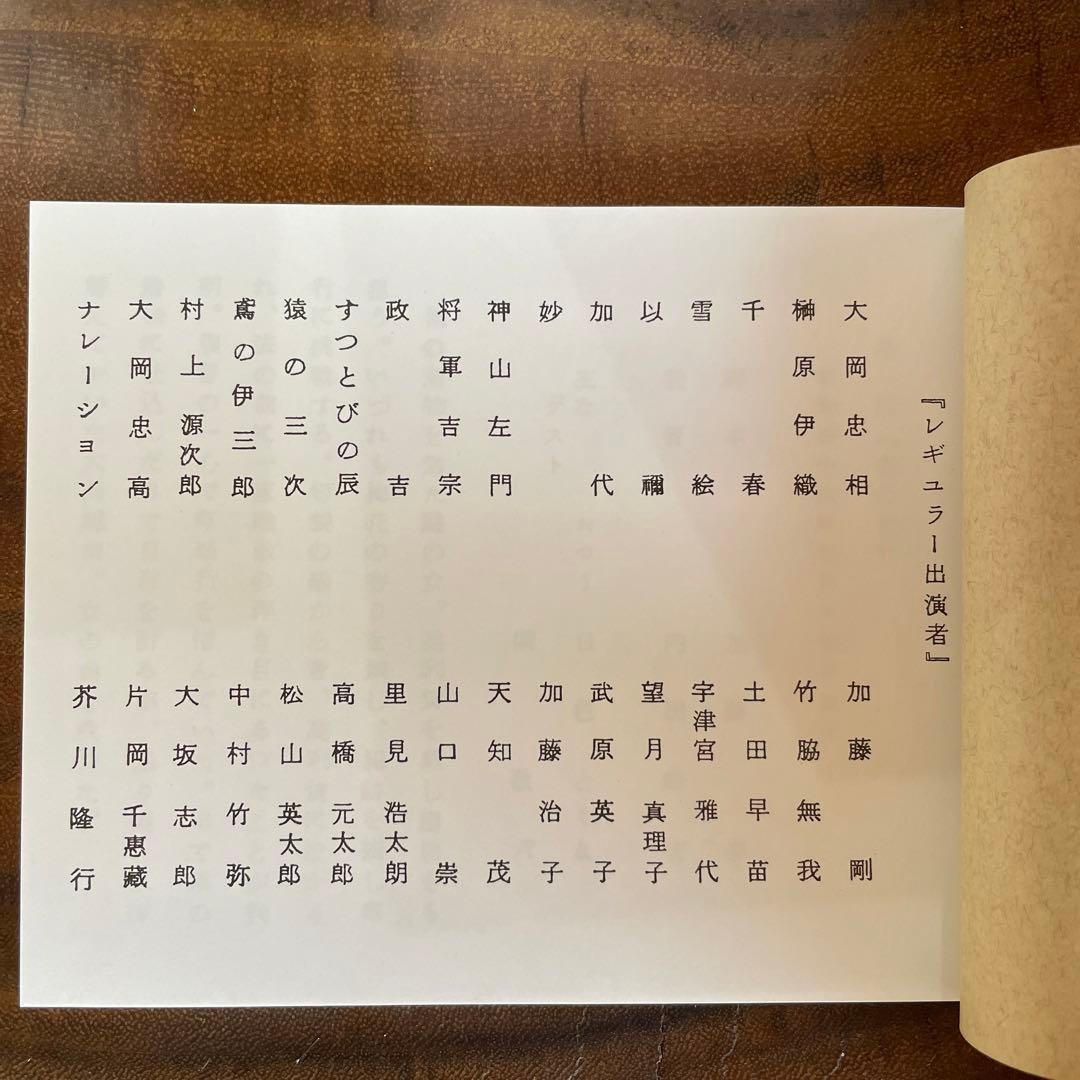 『レギュラー出演者』
大岡忠相 加藤剛
榊原伊織 竹脇無我
千春 土田早苗
雪絵 宇津宮雅代
以禰 望月真理子
加代 武原英子
妙 加藤治子
神山左門 天知茂
将軍吉宗 山口崇
政吉 里見浩太朗
すっとびの辰 高橋元太郎
猿の三次 松山英太郎
鳶の伊三郎 中村竹弥
村上源次郎 大坂志郎
大岡忠高 片岡千惠藏
ナレーション 芥川隆行